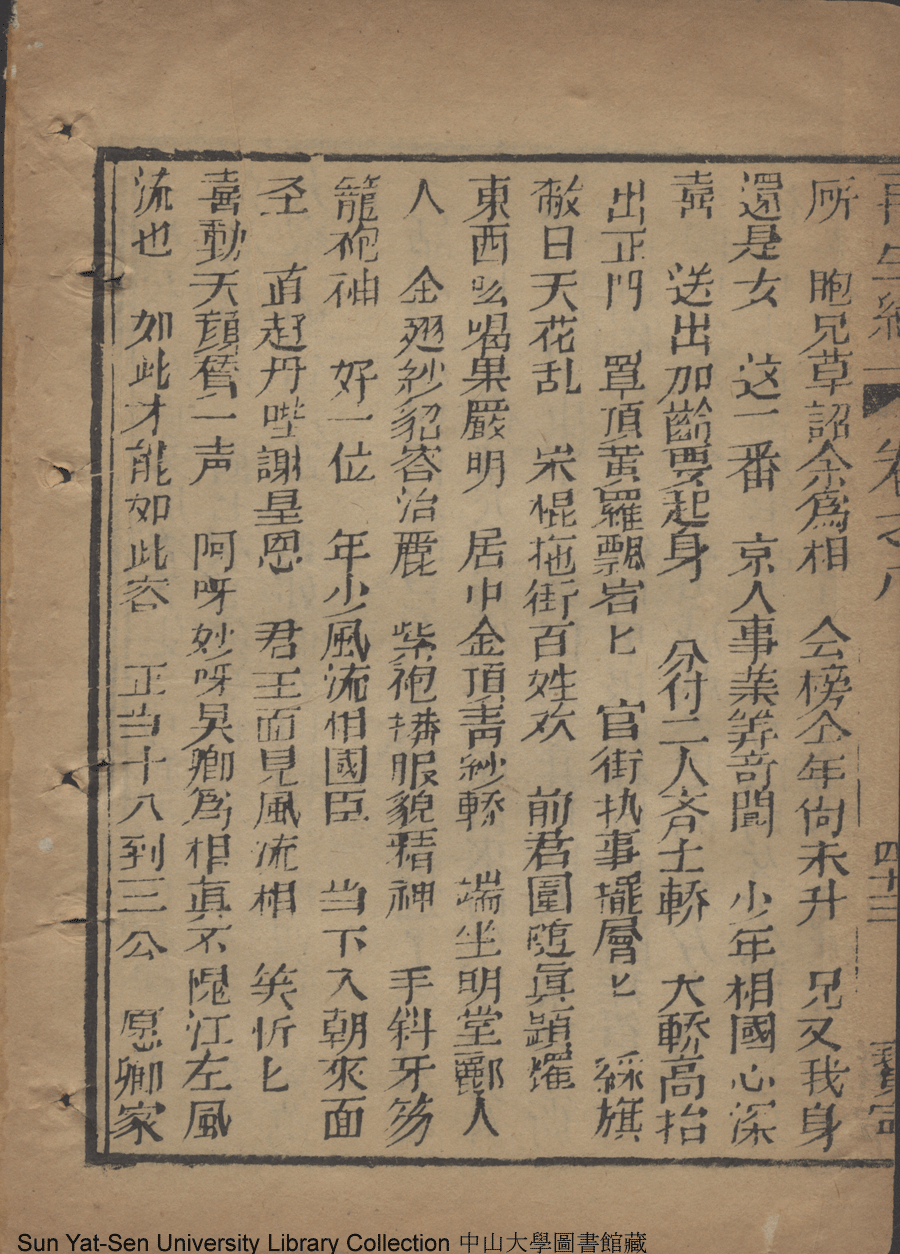 再生緣 卷之八 四十三
所 胞兄草詔余為相 会榜仝年尙未升 兄又我身
還是女 这一番 京人事業筭奇聞 少年相國心深
喜 送出加齡要起身 分付二人齐士轎 大轎高抬
出正門 罩頂黄羅飄岩匕 官街执事擺層匕 綵旗
敝日天花乱 宋棍拖街百姓欢 前君圍隨真顕耀
東西吆喝果嚴明 居中金頂青紗轎 端坐明堂酈人
人 金翅紗貂容冶麗 紫袍搆服貌精神 手斜牙笏
籠袍袖 好一位 年少風流相國臣 当下入朝來面
圣 直赶丹陛謝皇恩 君王面見風流相 笑忻匕
喜動天顔賛一声 阿呀妙呀吴卿爲相真不愧江左風
流也 如此才能如此容 正当十八到三公 愿卿家
Sun Yat-Sen University Library Collection 中山大學圖書館藏